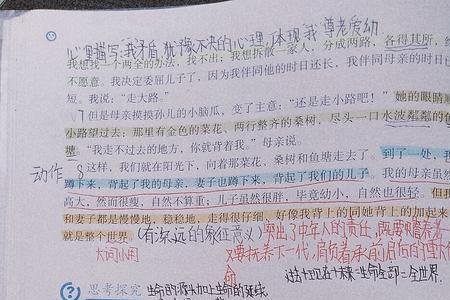 心里描写:我矛盾,犹豫不决的心理,体现我尊老爱幼
我想找一个两全的办法,找不出;我想拆散一家人,分成两路,各得其所,终
不愿意。我决定委屈儿子了,因为我伴同他的时日还长,我伴同母亲的时日已
短。我说:“走大路。”
7但是母亲摸摸孙儿的小脑瓜,变了主意:“还是走小路吧!”她的眼睛
小路望过去:那里有金色的菜花、两行整齐的桑树,尽头一口水波粼粼的鱼
塘。“我走不过去的地方,你就背着我。”母亲说。
动作
8这样,我们就在阳光下,向着那菜花、桑树和鱼塘走去了。到了一处,我
蹲下来,背起了我的母亲,妻子也蹲下来,背起了我们的儿子。我的母亲虽然
高大,然而很瘦,自然不算重;儿子虽然很胖,毕竟幼小,自然也很轻。但我
和妻子都是慢慢地,稳稳地,走得很仔细,好像我背上的同她背上的加起来
就是整个世界。
(有深远的象征意义)
突出了中年人的责任,既要赡养老
大词小用
又要抚养下一代,肩负着承前启后的重大
思考探究
生命的源头加上生命的延续